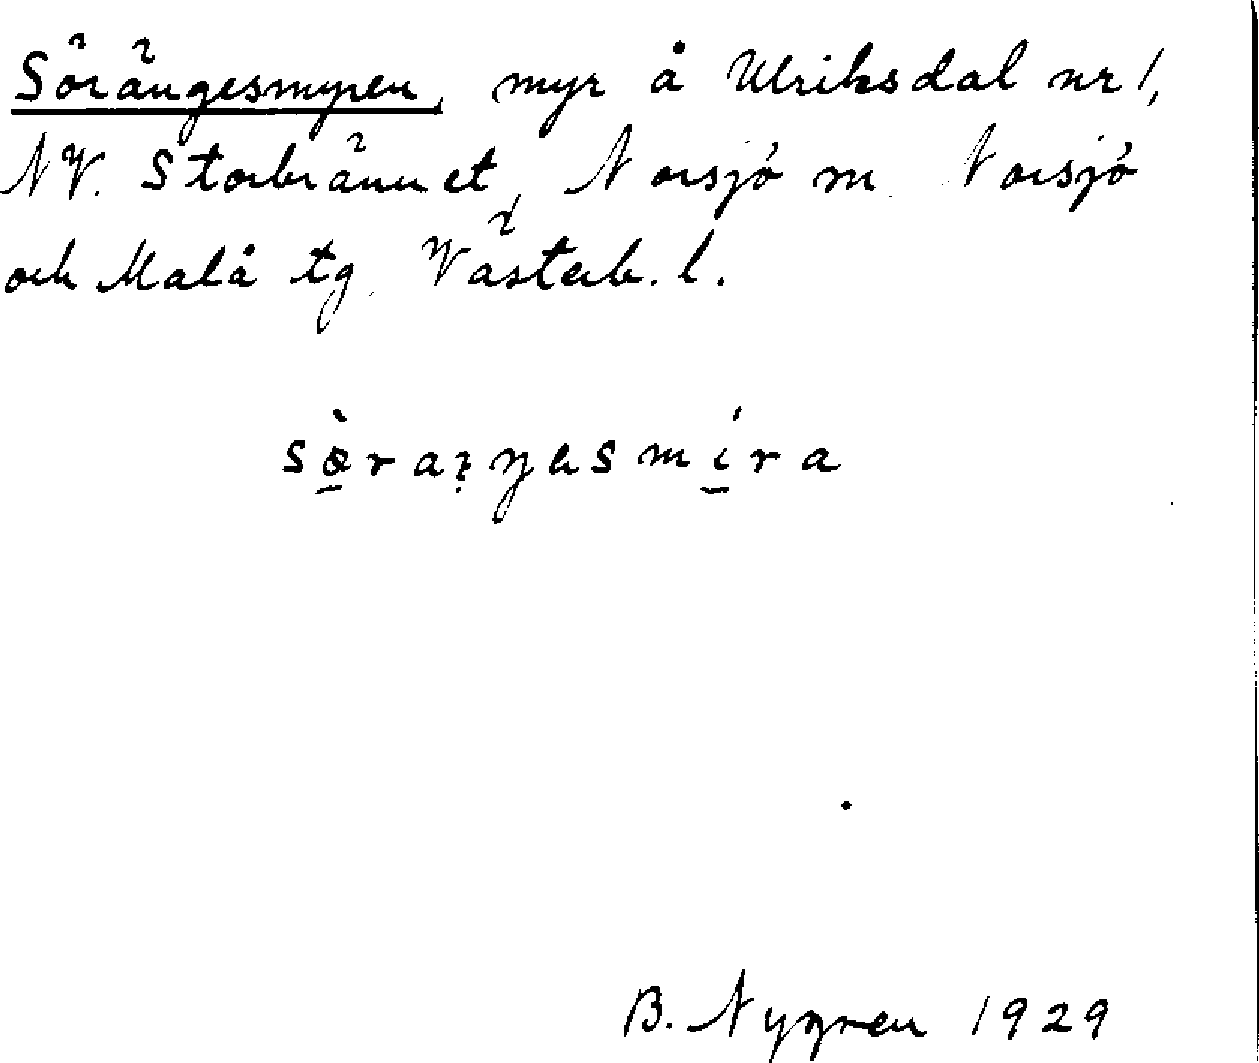 Sörängesmyren, myr å Ulriksdal nr 1,
NV. Storbrännet, Norsjö sn. Norsjö
och Malå tg. Västerb. l.
B. Nygren 1929